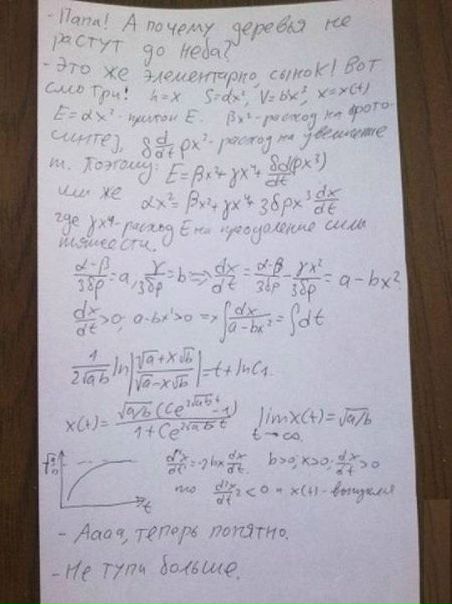 - Папа! А почему деревья не
растут до неба?
- Это же элементарно, сынок! Вот
смотри! h=x S=αx², V=bx³, x=x(t)
E=αx² - приток E. βx² - расход на фото-
синтез, δ d/dt ρx³ - расход на увеличение
m. Поэтому: E=βx²+γx⁴+δd(ρx³)/dt
или же αx²=βx²+γx⁴+3δρx² dx/dt
где γx⁴ - расход E на преодоление силы
тяжести.
(α-β)/3δρ=a, γ/3δρ=b => dx/dt=(α-β)/3δρ - γx²/3δρ = a-bx²
dx/dt>0; a-bx²>0 => ∫dx/(a-bx²)=∫dt
1/(2√ab) ln|(√a+x√b)/(√a-x√b)|=t+lnC₁.
x(t)=√a/b (Ce^(2√ab t)-1)/(1+Ce^(2√ab t)) lim x(t)=√a/b
t→∞
√a/b d²x/dt²=-2bx dx/dt. b>0; x>0; dx/dt>0
t то d²x/dt²<0 и x(t) - выпукла
- Аааа, теперь понятно.
- Не тупи больше.